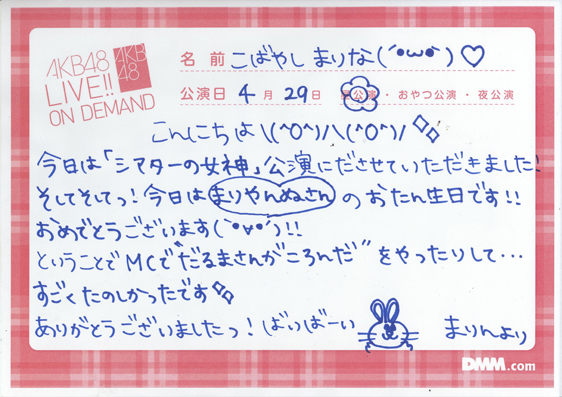 AKB48
LIVE!!
ON DEMAND
AKB
48
名前 こばやし まりな(´•ω•`)♡
公演日 4月 29日 昼公演・おやつ公演・夜公演
こんにちは\(^O^)/\(^O^)/
今日は「シアターの女神」公演にださせていただきました!
そしてそしてっ!今日はまりやんぬさんのおたん生日です!!
おめでとうございます(`•∀•´)!!
ということでMCで"だるまさんがころんだ"をやったりして…
すごくたのしかったです
ありがとうございましたっ!ばいばーい まりんより
DMM.com